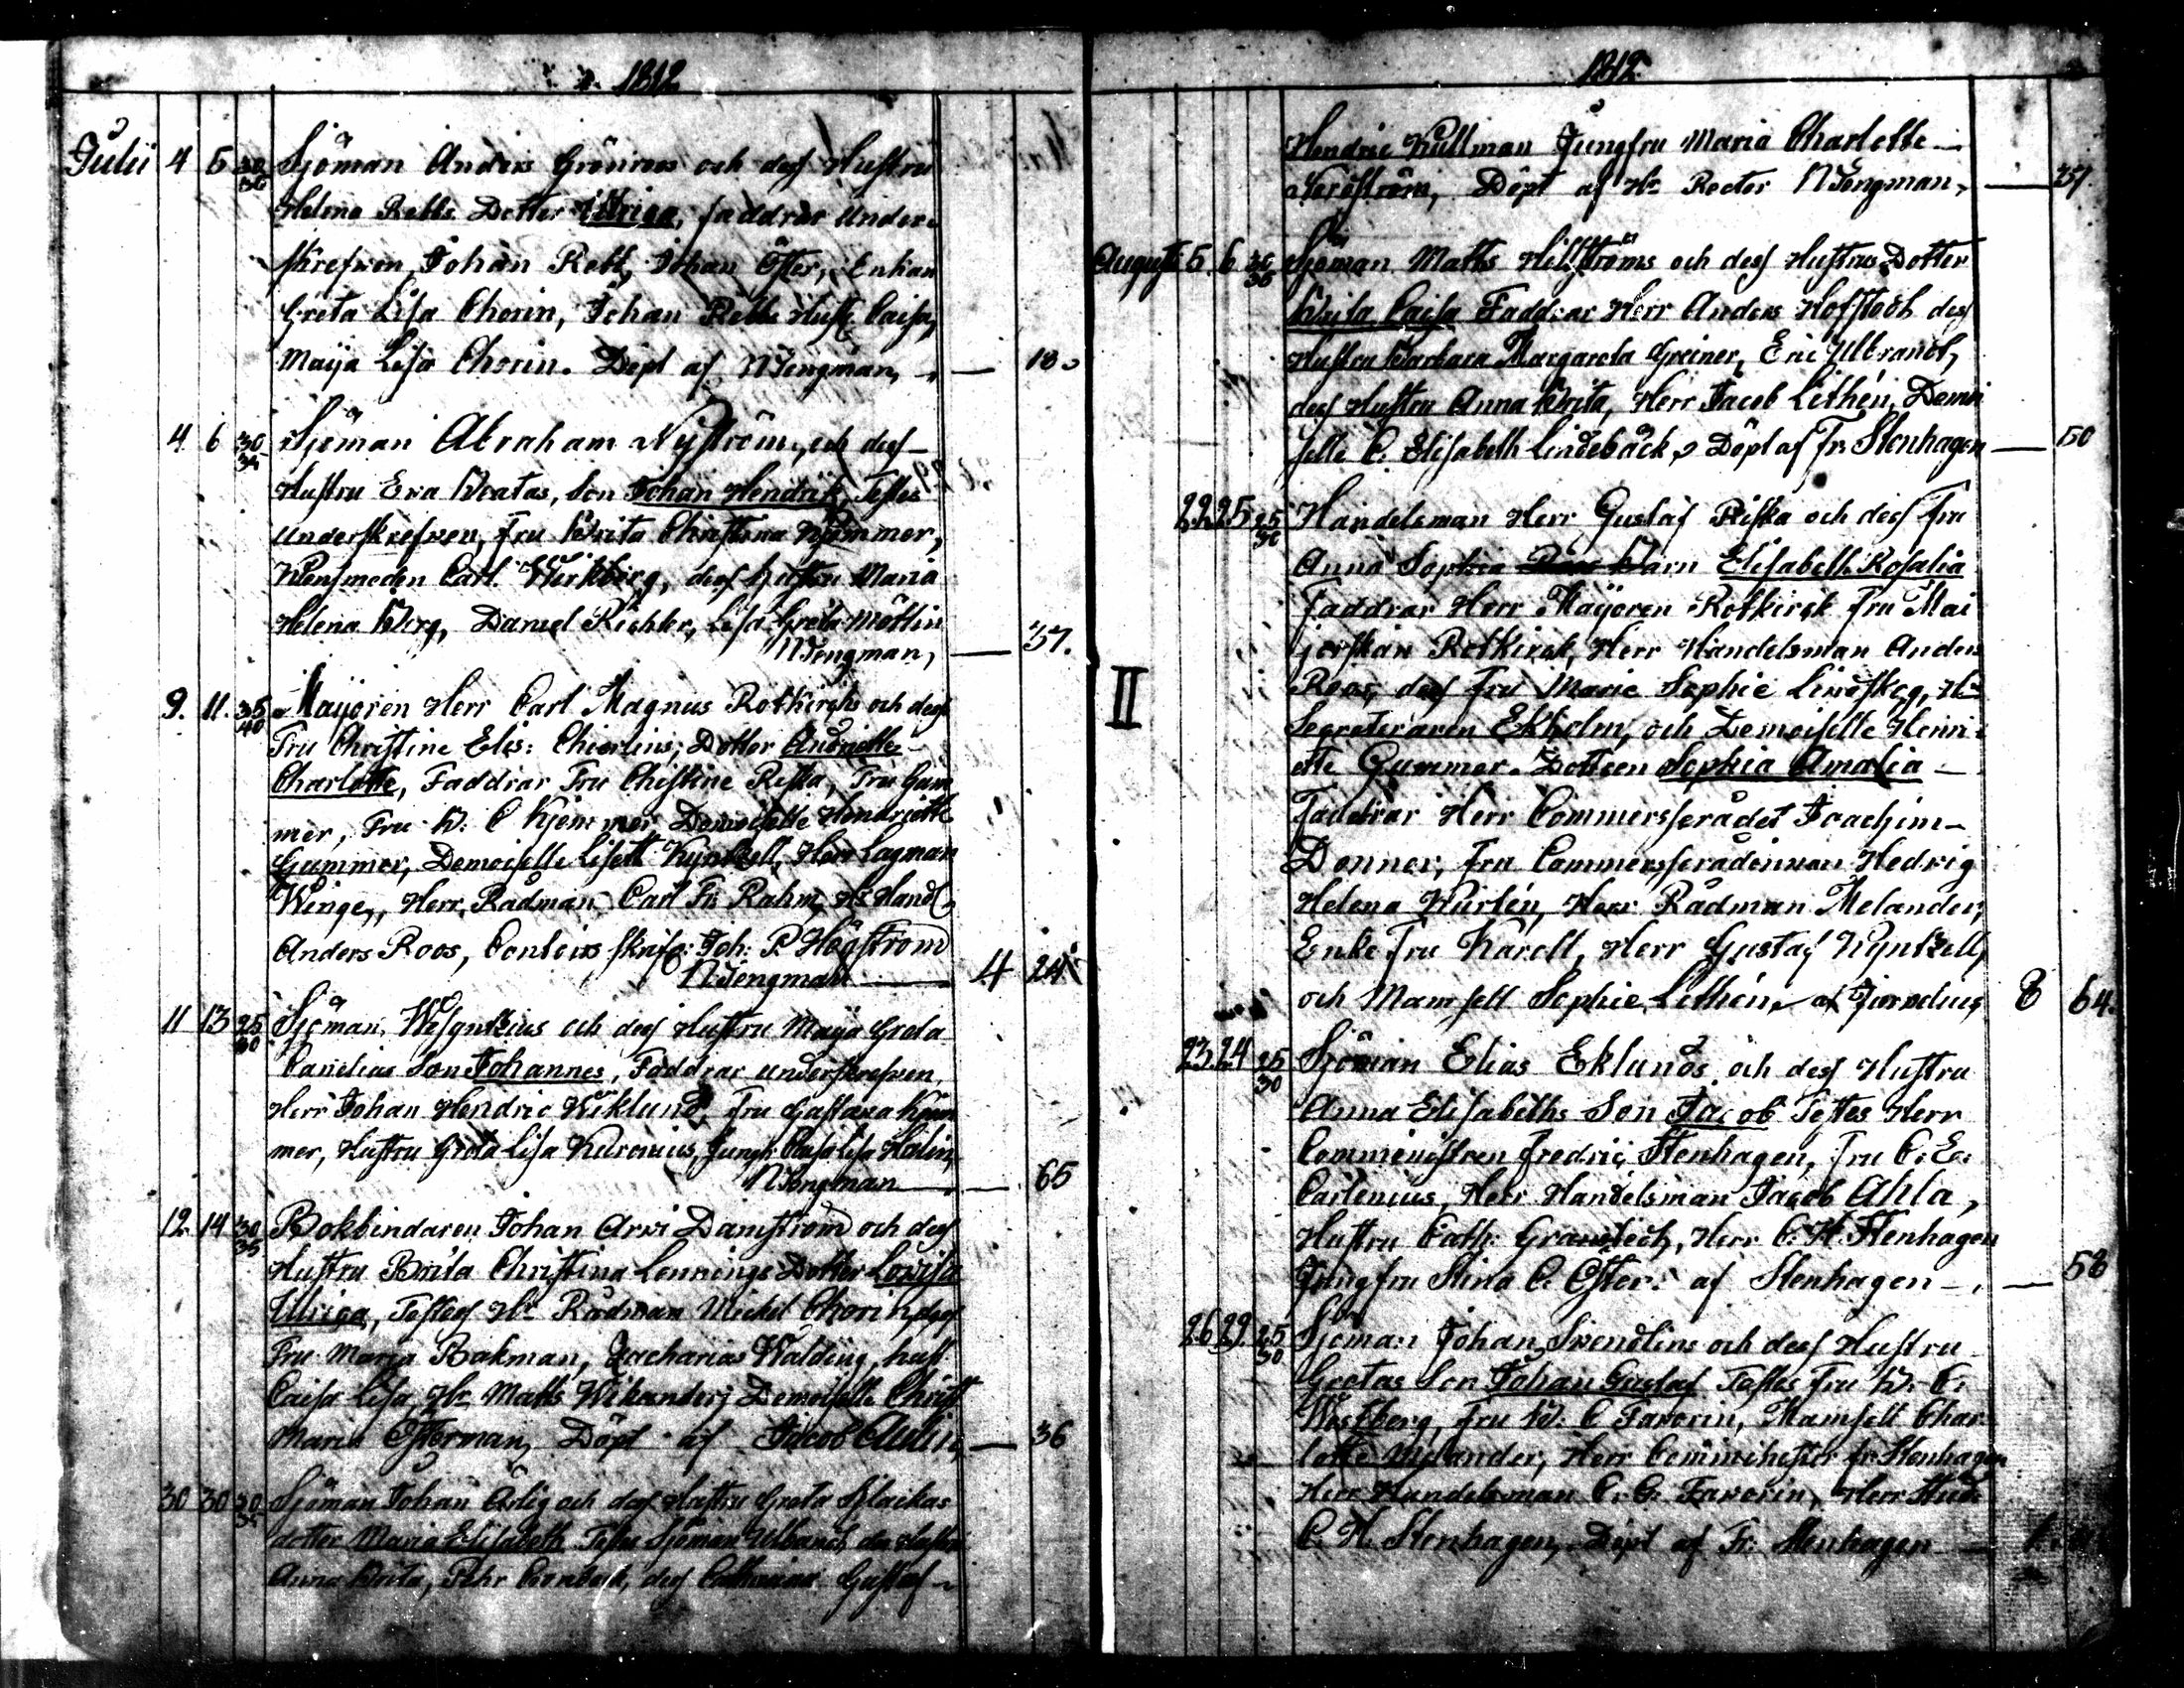 1812
Julii 4 5 30/35 Sjöman Anders Grönroos och dess Hustru
Helena Rebbs Dotter Ulrica, faddrar under
skrefven, Johan Rebb, Johan Öster, Enkan
Greta Lisa Chorin, Johan Rebbs Hust: Caisa,
Maija Lisa Chorin. Döpt af NTengman, — 18.
4. 6 30/35 Sjöman Abraham Nyström, och dess
Hustru Eva Beatas, Son Johan Hendrik, Testes
underskrefven, Fru Brita Christina Kjemmer,
Länsmaden Carl Wirkberg, dess hustru Maria
Helena Berg, Daniel Richter, Lisa Greta Möllin
NTengman, — 37.
9. 11. 35/40 Maijoren Herr Carl Magnus Rotkirchs och dess
Fru Christine Elis: Chierlins, Dotter Andriette
Charlotte, Faddrar Fru Christine Riska, Fru Gum
mer, Fru B. C Kjemmer Demoiselle Hendriette
Gummer, Demoiselle Lisett Kyntzell, Herr Lagman
Winge, Herr Rådman Carl Fr: Rahm, Hr Handl
Anders Roos, Contoirs skrif: Joh: P Högström
NTengman — 4 24
11 13 25/30 Sjöman, och dess Hustru Maija Greta
Canelias Son Johannes, Faddrar underskrefven,
Herr Johan Hendric Wiklund, Fru Gustava Kjem
mer, Hustru Greta Lisa Kuronius, Jungfr: Caisa Lisa Holin,
NTengman — 65
12. 14 30/35 Bokbindaren Johan Arvi Damström och dess
Hustru Brita Christina Lennings Dotter Lovisa
Ulrica, Testes Hr Rådman Michel Chorin dess
Fru Maria Bakman, Zacharias Walding, hust
Caisa Lisa, Hr Matts Wikander, Demoiselle Christ
Maria Österman, Döpt af Jacob Aulin, — 36
30 30 30/35 Sjöman Johan Ärlig och dess Hustru Greta Slackas
dotter Maria Elisabeth Testes Sjöman Ulbrandt, dess Hustru
Anna Brita, Pehr dess Gustaf
1812.
Hendric Kullman Jungfru Maria Charlotte
Nordström, Döpt af Hr Rector NTengman, — 37.
Augusti 5. 6. 30/36 Sjöman Matts Hellströms och dess Hustrus Dotter
Brita Caisa Faddrar Herr Anders Hoffstedt dess
Hustru Barbara Margareta Greiner, Eric Ulbrandt,
dess Hustru Anna Brita, Herr Jacob Lithén, Demoi
selle C. Elisabeth Lindebäck, Döpt af Fr: Stenhagen — 50
22. 25. 25/30 Handelsman Herr Gustaf Riska och dess Fru
Anna Sophia Barn Elisabeth Rosalia
Faddrar Herr Maijoren Rotkirck Fru Mai
jorskan Rotkirck, Herr Handelsman Anders
Roos, dess Fru Marie Sophie Lindskog, Hr
Secreteraren Ekholm, och Demoiselle Henri
ette Gummer. Dottren Sophia Amalia —
Faddrar Herr Commersserådet Joachim
Donner, Fru Commersserådinnan Hedvig
Helena Kurlén, Herr Rådman Melander,
Enke Fru Karell, Herr Gustaf Kyntzell,
och Mamsell Sophie Lithén, af Jurvelius, 8 64.
23. 24 25/30 Sjöman Elias Eklunds och dess Hustru
Anna Elisabeths Son Jacob Testes Herr
Comministren Fredric Stenhagen, Fru C. E.
Carlenius, Herr Handelsman Jacob Ahla,
Hustru Cath: Granstedt, Herr C. H. Stenhagen
Jungfru Stina C. Öster. af Stenhagen — 58
26. 29. 25/30 Sjöman Johan Svendlins och dess Hustru
Gretas Son Johan Gustaf Testes Fru B. C.
Westberg, Fru B. C Favorin, Mamsell Char
lotte Melander, Herr Comminister Fr: Stenhagen
Herr Handelsman C. G. Favorin, Herr Stud:
C. H. Stenhagen, Döpt af Fr: Stenhagen —
II